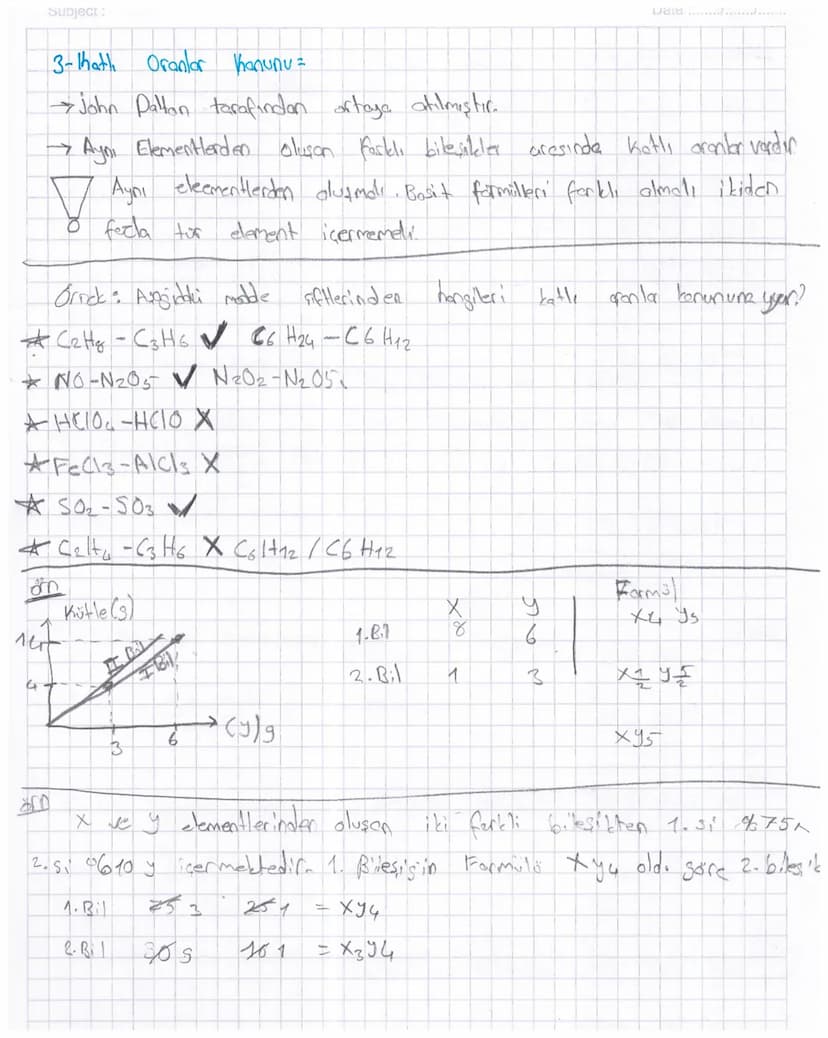 Subject :
Date ..................
3- Katlı Oranlar Kanunu =
→ john Dalton tarafından ortaya atılmıştır.
→ Aynı Elementlerden oluşan farklı bileşikler arasında katlı oranlar vardır
! Aynı eleementlerden oluşmalı. Basit formülleri farklı olmalı ikiden
fazla tür element içermemeli.
Örnek : Aşağıdaki madde çiftlerinden hangileri katlı oranlar kanununa uyar?
★ C2H8 - C3H6 ✓ C6 H24 - C6 H12
★ NO - N2O5 ✓ N2O2 - N2O5
★ HClO4 - HClO X
★ FeCl3 - AlCl3 X
★ SO2 - SO3 ✓
★ C2H4 - C3H6 X C6H12 / C6H12
ön
Kütle (g)
X y Formül
14 II Bil I Bil 1. Bil 8 6 X4 Y5
4 2. Bil 1 3 X1/2 Y5/2
3 6 (y)g
XY5
örn
X ve y elementlerinden oluşan iki farklı bileşikten 1. si %75x
2. si %10 y içermektedir. 1. Bileşiğin Formülü Xy4 old. göre 2. bileşik
1. Bil 25 3 25 1 = XY4
2. Bil 30 5 10 1 = X3Y4